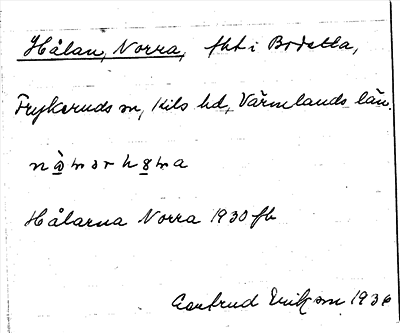 Hålan, Norra, fht i Brosetta,
Frykeruds sn, Kils hd, Värmlands län.
Hålarna Norra 1930 fb
Gertrud Erikson 1936